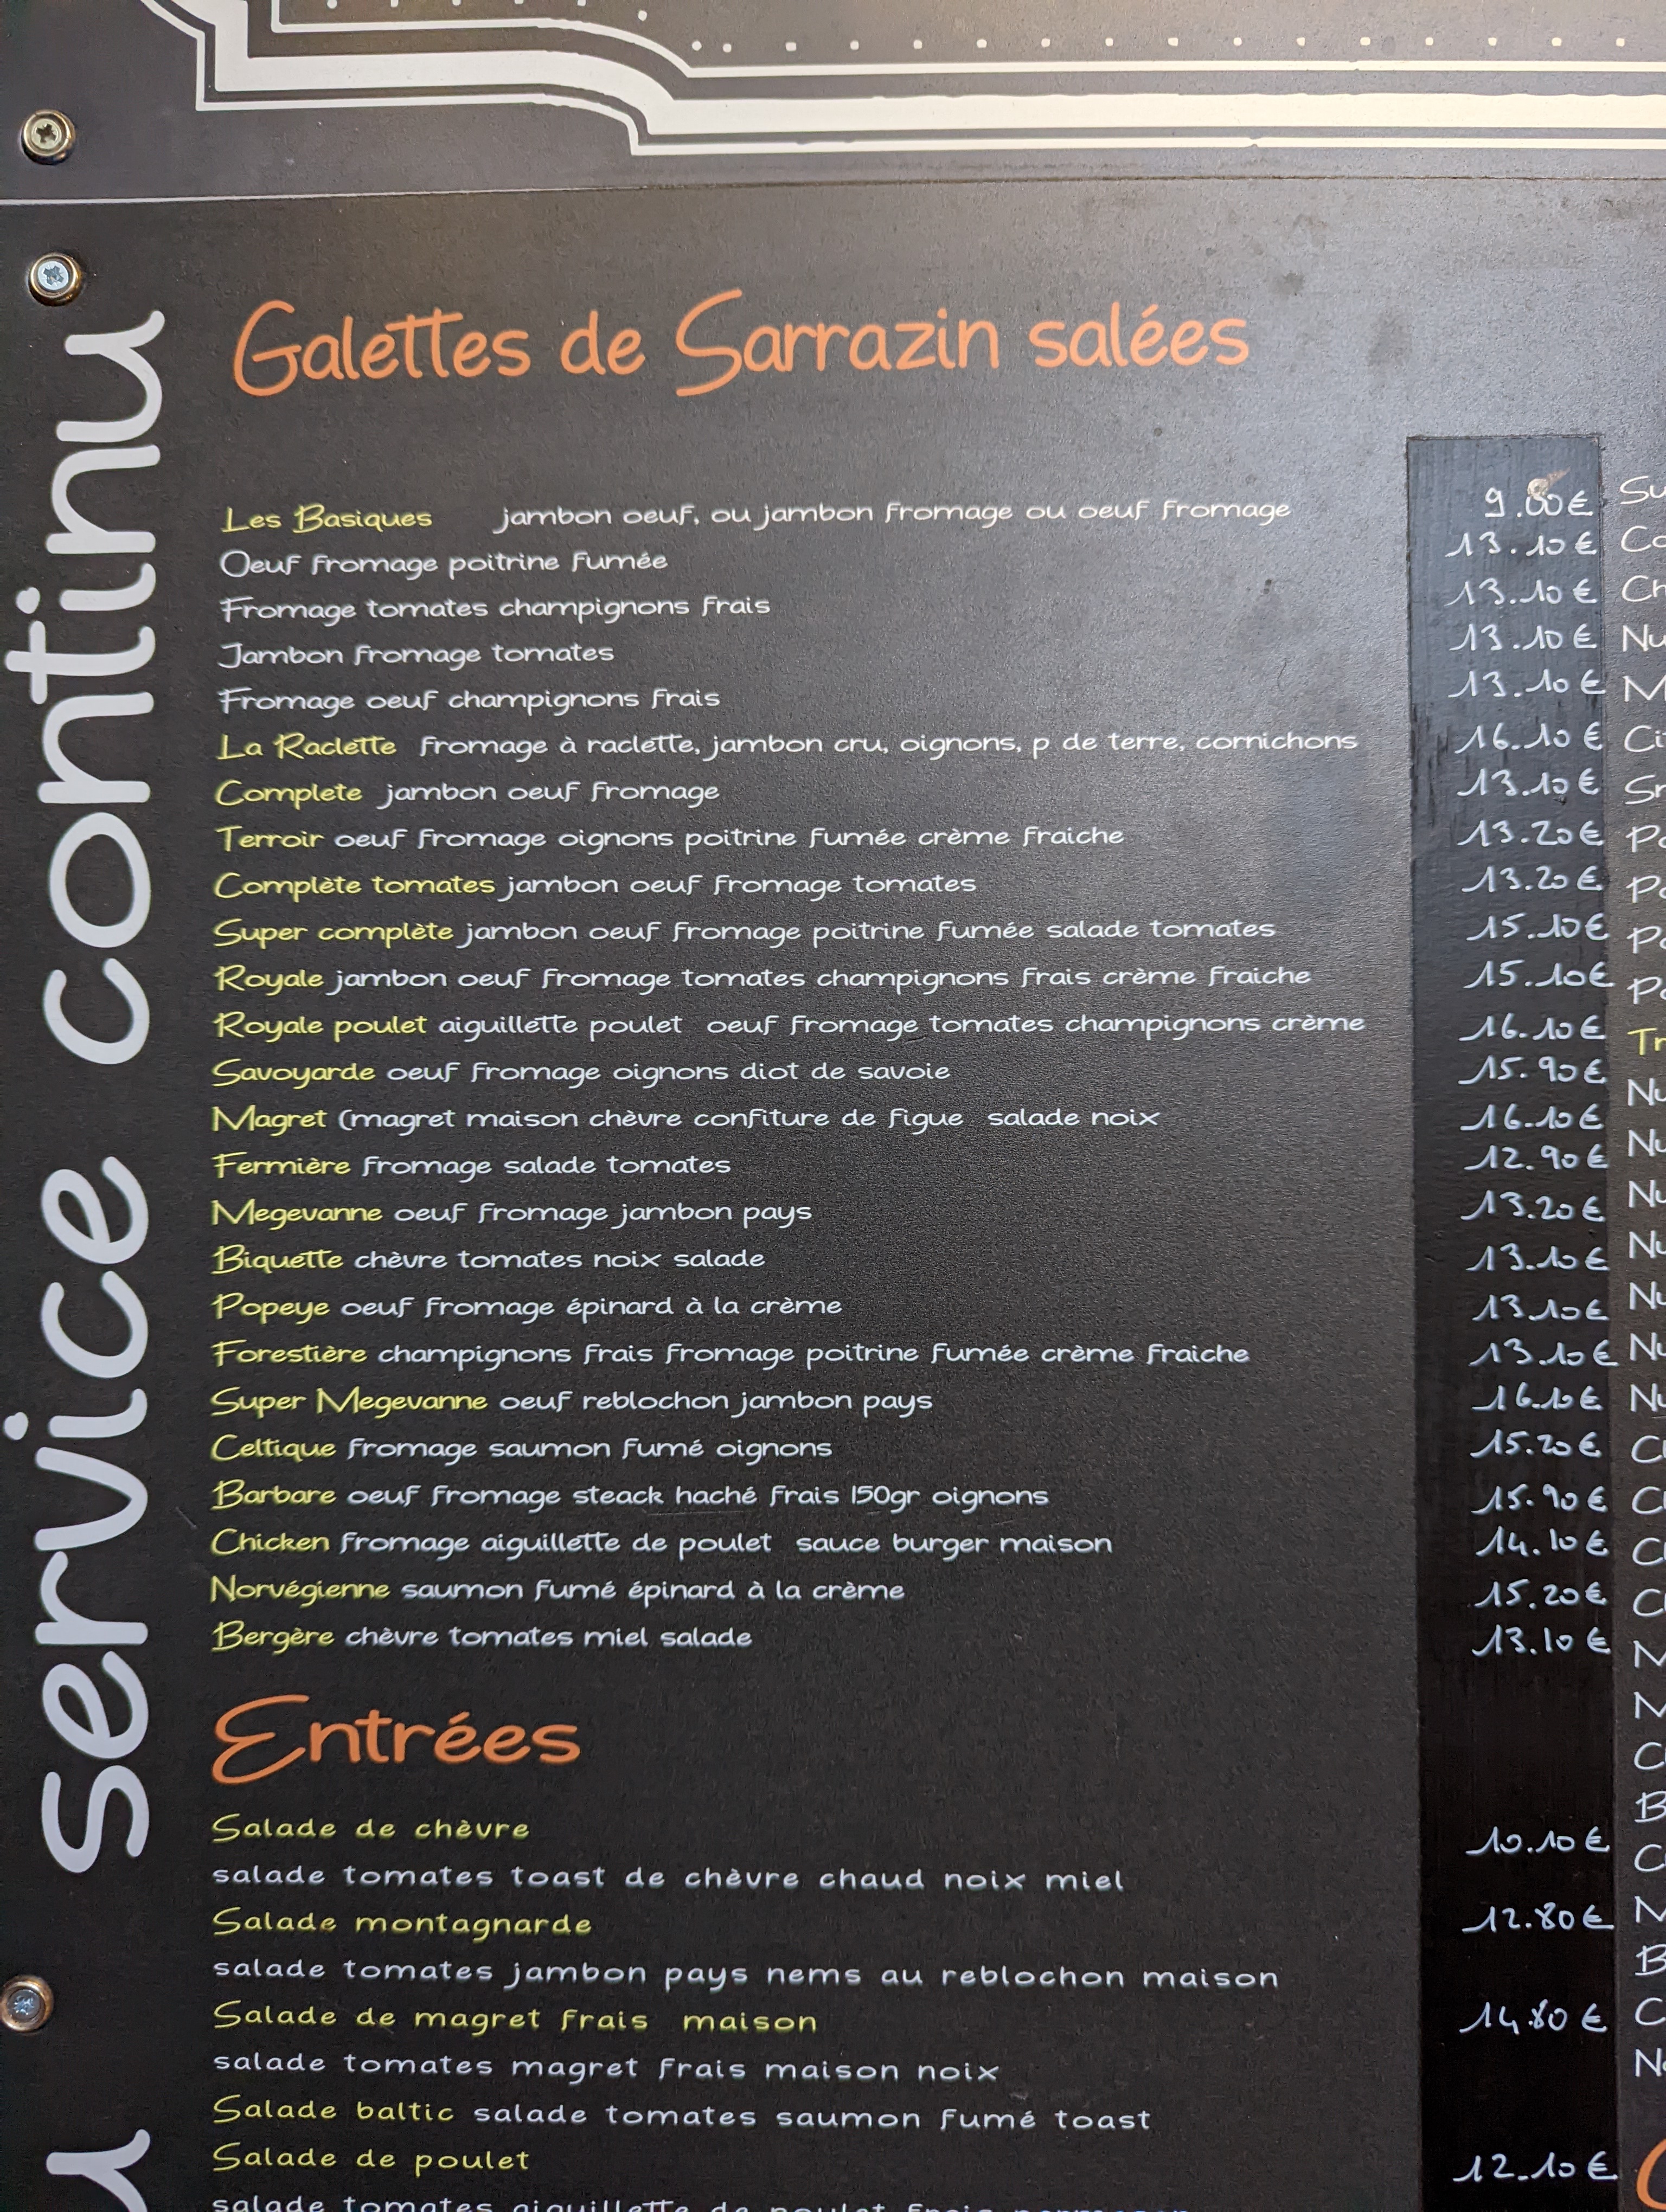 service continu
Galettes de Sarrazin salées
Les Basiques jambon oeuf, ou jambon fromage ou oeuf fromage 9.00€
Oeuf fromage poitrine fumée 13.10€
Fromage tomates champignons frais 13.10€
Jambon fromage tomates 13.10€
Fromage oeuf champignons frais 13.10€
La Raclette fromage à raclette, jambon cru, oignons, p de terre, cornichons 16.10€
Complete jambon oeuf fromage 13.10€
Terroir oeuf fromage oignons poitrine fumée crème fraiche 13.20€
Complète tomates jambon oeuf fromage tomates 13.20€
Super complète jambon oeuf fromage poitrine fumée salade tomates 15.10€
Royale jambon oeuf fromage tomates champignons frais crème fraiche 15.10€
Royale poulet aiguillette poulet oeuf fromage tomates champignons crème 16.10€
Savoyarde oeuf fromage oignons diot de savoie 15.90€
Magret (magret maison chèvre confiture de figue salade noix 16.10€
Fermière fromage salade tomates 12.90€
Megevanne oeuf fromage jambon pays 13.20€
Biquette chèvre tomates noix salade 13.10€
Popeye oeuf fromage épinard à la crème 13.10€
Forestière champignons frais fromage poitrine fumée crème fraiche 13.10€
Super Megevanne oeuf reblochon jambon pays 16.10€
Celtique fromage saumon fumé oignons 15.20€
Barbare oeuf fromage steack haché frais 150gr oignons 15.90€
Chicken fromage aiguillette de poulet sauce burger maison 14.10€
Norvégienne saumon fumé épinard à la crème 15.20€
Bergère chèvre tomates miel salade 13.10€
Entrées
Salade de chèvre 10.10€
salade tomates toast de chèvre chaud noix miel
Salade montagnarde 12.80€
salade tomates jambon pays nems au reblochon maison
Salade de magret frais maison 14.80€
salade tomates magret frais maison noix
Salade baltic salade tomates saumon fumé toast
Salade de poulet 12.10€
salade tomates aiguillette de poulet frais